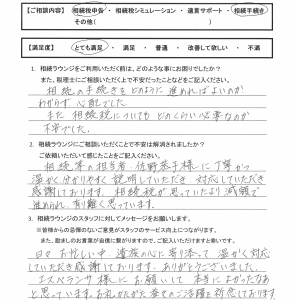 【ご相談内容】 相続税申告 ・ 相続税シミュレーション ・ 遺言サポート ・ 相続手続き
その他( )
【満足度】 とても満足 ・ 満足 ・ 普通 ・ 改善して欲しい ・ 不満
1. 相続ラウンジをご利用いただく前は、どのような事にお困りでしたか?
また、税理士にご相談いただく上で不安だったことなどをご記入ください。
相続の手続きをどのように進めればよいのか
わからず心配でした
また相続税についてもどのくらい必要なのか
不安でした。
2. 相続ラウンジにご相談いただくことで不安は解消されましたか?
ご依頼いただいて感じたことをご記入ください。
相続の担当者 佐野恭子様に丁寧かつ
温かく分かりやすく説明していただき 対応していただき
感謝しております。相続税が思っていたより減額で
進められ、有り難く思っています。
3. 相続ラウンジのスタッフに対してメッセージをお願いします。
※皆様からの忌憚のないご意見がスタッフのサービス向上につながります。
また、励ましのお言葉が自信に繋がりますので、ご記入いただけますと幸いです。
日々お忙しい中 遺族の心に寄り添って 温かく対応
していただき感謝しております。ありがとうございました。
エスペランサ様にお願いして 本当によかったなあ
と思っています。お礼かたがた 皆様のご活躍を祈念しております